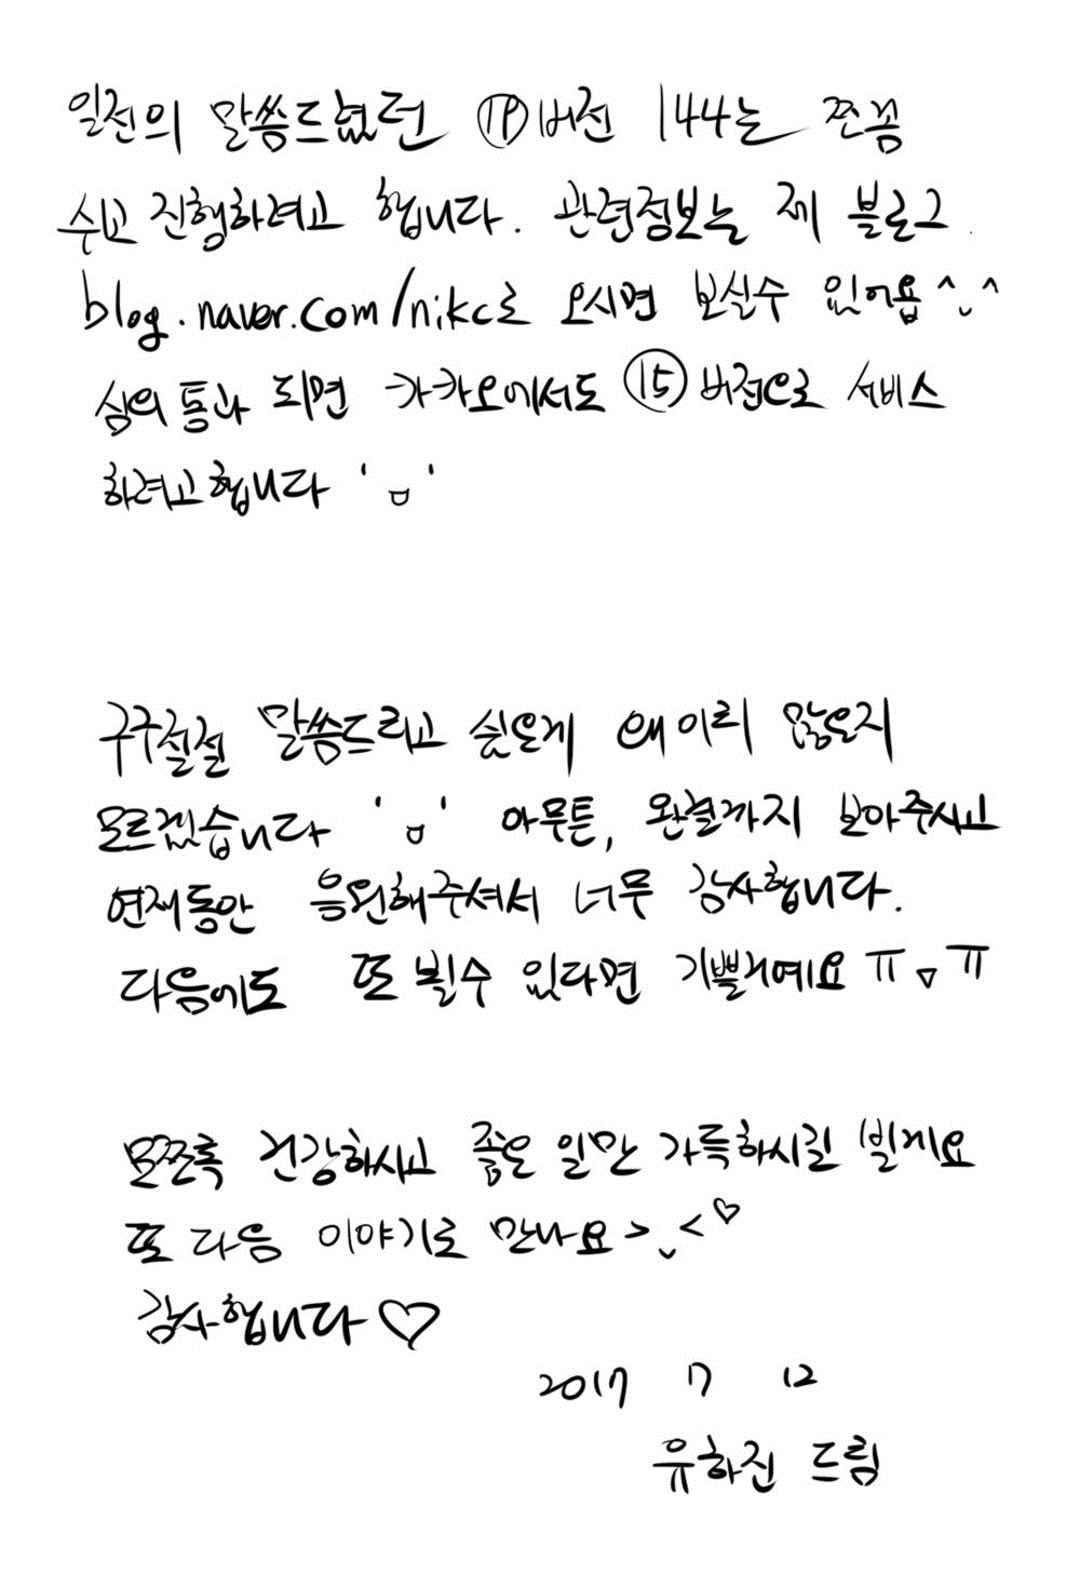 일전의 말씀드렸던 ⑲버전 144는 쪼꼼
쉬고 진행하려고 합니다. 관련정보는 제 블로그
blog.naver.com/nikc로 오시면 보실수 있어욥^ᴗ^
심의 통과 되면 카카오에서도 ⑮버전으로 서비스
하려고합니다 'ㅁ'
구구절절 말씀드리고 싶은게 왜이리 많은지
모르겠습니다 'ㅁ' 아무튼, 완결까지 보아주시고
연재동안 응원해주셔서 너무 감사합니다.
다음에도 또 뵐수 있다면 기쁠거예요 ㅠㅁㅠ
모쪼록 건강하시고 좋은 일만 가득하시길 빌게요
또 다음 이야기로 만나요>ᴗ<♡
감사합니다♡
2017 7 12
유하진 드림